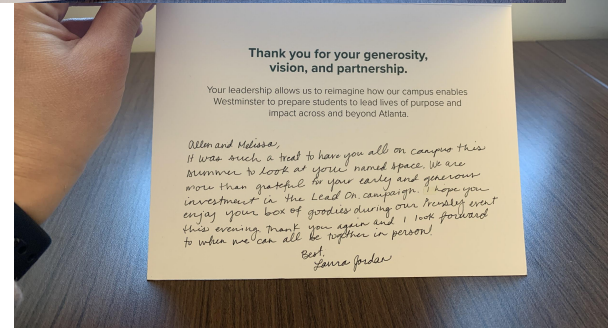 Thank you for your generosity,
vision, and partnership.
Your leadership allows us to reimagine how our campus enables
Westminster to prepare students to lead lives of purpose and
impact across and beyond Atlanta.
Allen and Melissa,
It was such a treat to have you all on campus this
summer to look at your named space. We are
more than grateful for your early and generous
investment in the Lead On campaign. I hope you
enjoy your box of goodies during our Pressly event
this evening. Thank you again and I look forward
to when we can all be together in person!
Best,
Laura Jordan